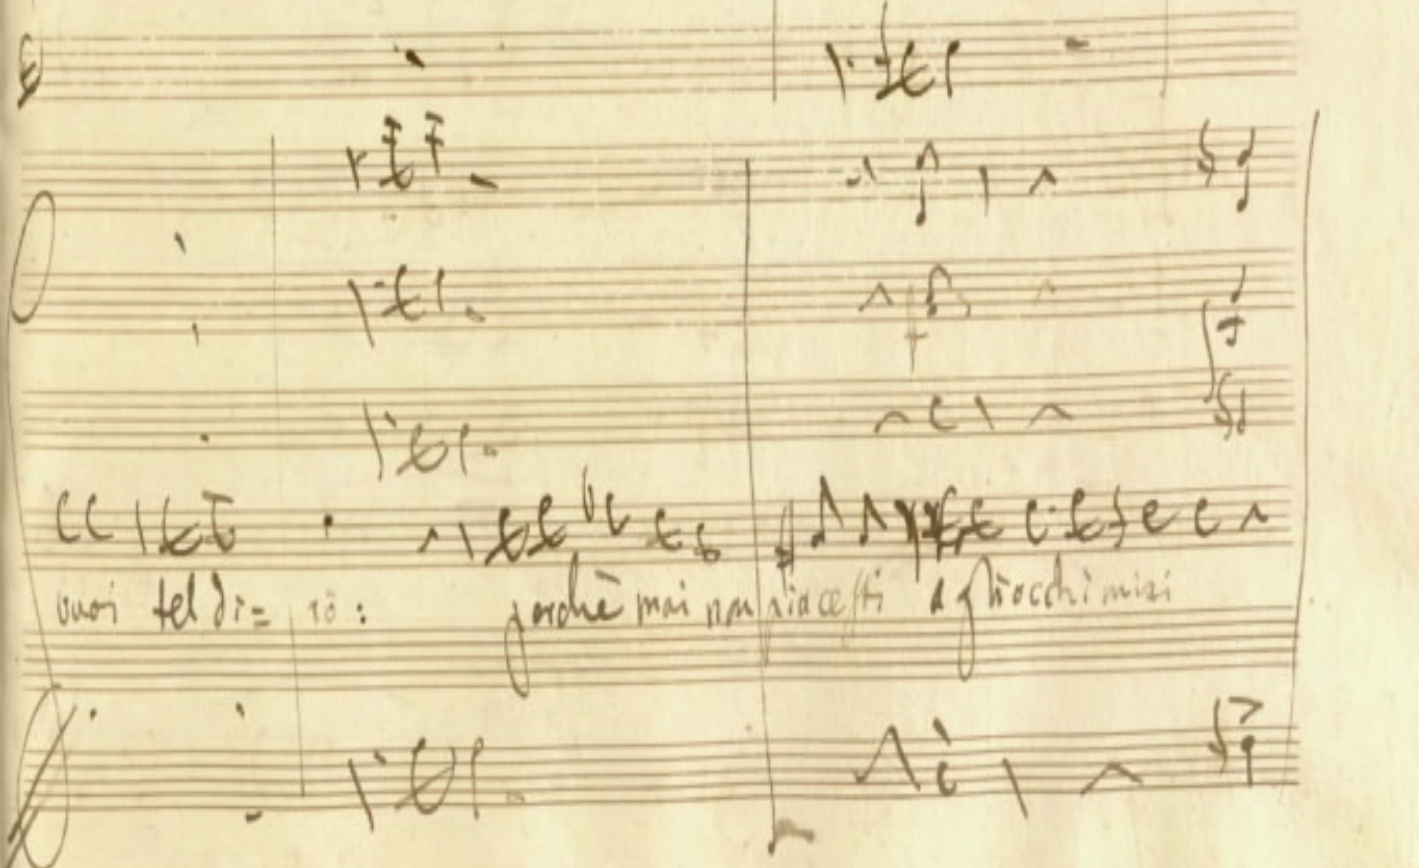 vuoi tel di= rò: perchè mai non piacesti a gliocchi miei